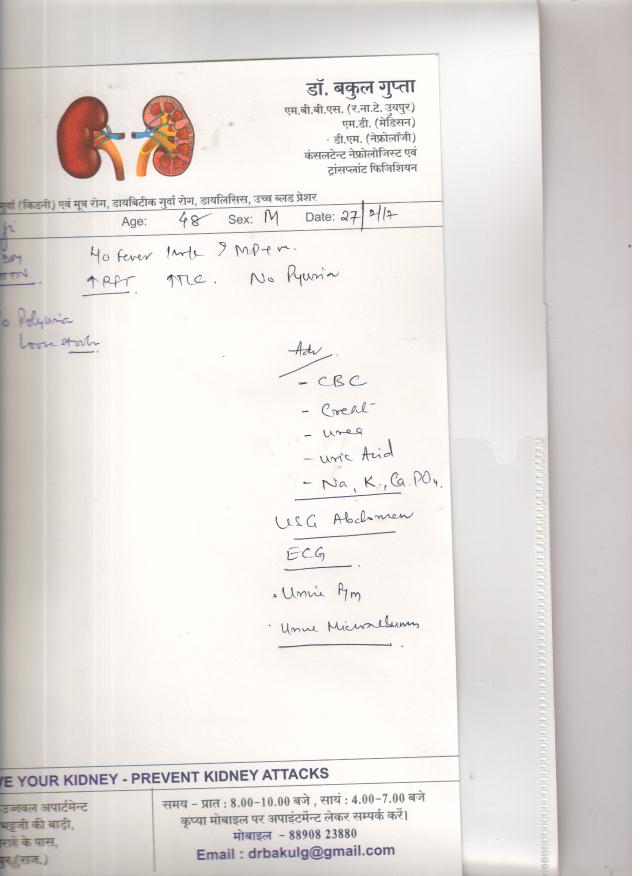 डॉ. बकुल गुप्ता
एम.बी.बी.एस. (र.ना.टे. उदयपुर)
एम.डी. (मेडिसन)
डी.एम. (नेफ्रोलॉजी)
कंसलटेन्ट नेफ्रोलोजिस्ट एवं
ट्रांसप्लांट फिजिशियन
गुर्दा (किडनी) एवं मूत्र रोग, डायबिटीक गुर्दा रोग, डायलिसिस, उच्च ब्लड प्रेशर
Age: 48 Sex: M Date: 27/2/17
fever
↑RFT ↑TLC. No Pyuria
Polyuria
Loose stools
Adv
- CBC
- Creat
- Urea
- Uric Acid
- Na, K, Ca, PO4.
USG Abdomen
ECG
Urine R/m
Urine Microalbumin
VE YOUR KIDNEY - PREVENT KIDNEY ATTACKS
उज्जवल अपार्टमेन्ट
भट्टजी की बाड़ी,
राहे के पास,
पुर (राज.)
समय - प्रात : 8.00-10.00 बजे , सायं : 4.00-7.00 बजे
कृप्या मोबाइल पर अपाइंटमेन्ट लेकर सम्पर्क करें।
मोबाईल - 88908 23880
Email : drbakulg@gmail.com